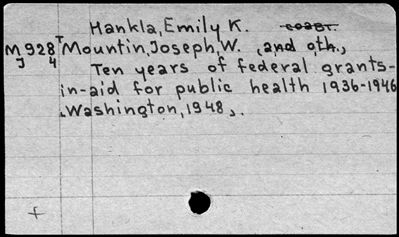 Hankla, Emily K. coabt.
M928 T Mountin, Joseph, W. (and oth.,
J 4
Ten years of federal grants-
in-aid for public health 1936-1946
Washington, 1948,.
+